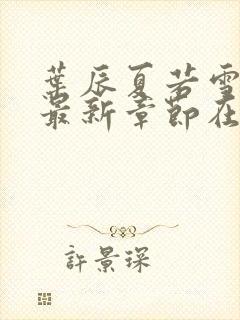 葉辰夏若雪
最新章節在
許景琛